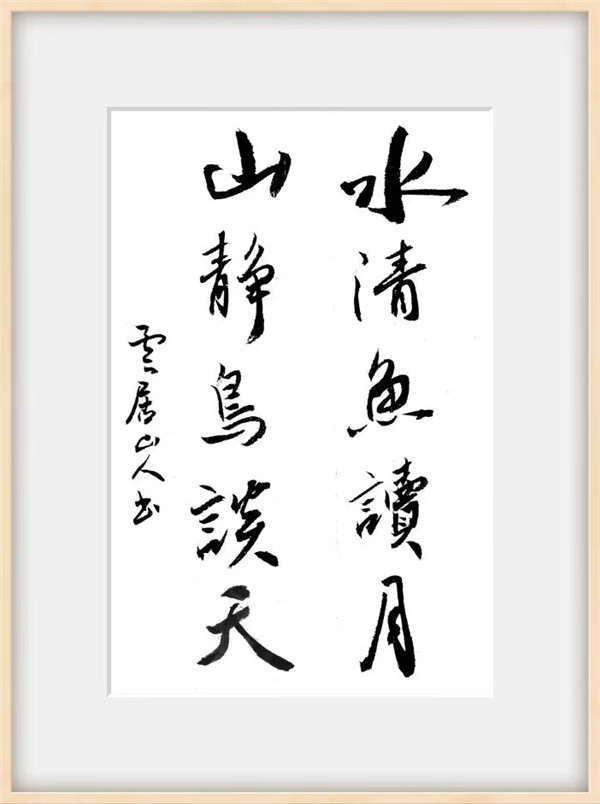 水清魚讀月
山靜鳥談天
雲居山人书